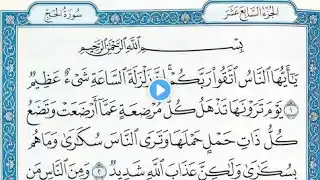 سُورَةُ الحَجِّ
الجُزْءُ السَّابِعَ عَشَرَ
بِسْمِ اللَّهِ الرَّحْمَٰنِ الرَّحِيمِ
يَٰٓأَيُّهَا النَّاسُ اتَّقُوا رَبَّكُمْ إِنَّ زَلْزَلَةَ السَّاعَةِ شَىْءٌ عَظِيمٌ
١ يَوْمَ تَرَوْنَهَا تَذْهَلُ كُلُّ مُرْضِعَةٍ عَمَّا أَرْضَعَتْ وَتَضَعُ
كُلُّ ذَاتِ حَمْلٍ حَمْلَهَا وَتَرَى النَّاسَ سُكَٰرَىٰ وَمَا هُم
بِسُكَٰرَىٰ وَلَٰكِنَّ عَذَابَ اللَّهِ شَدِيدٌ ٢ وَمِنَ النَّاسِ مَن